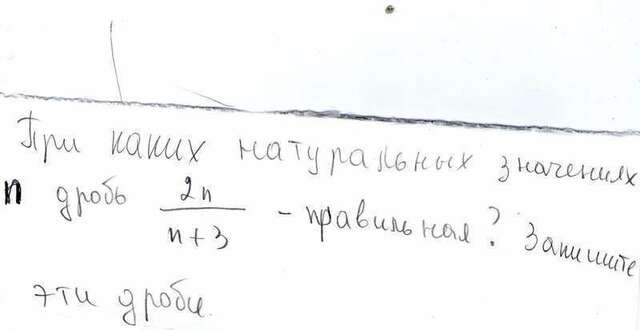 При каких натуральных значениях
n дробь 2n/n+3 - правильная? Запишите
эти дроби.